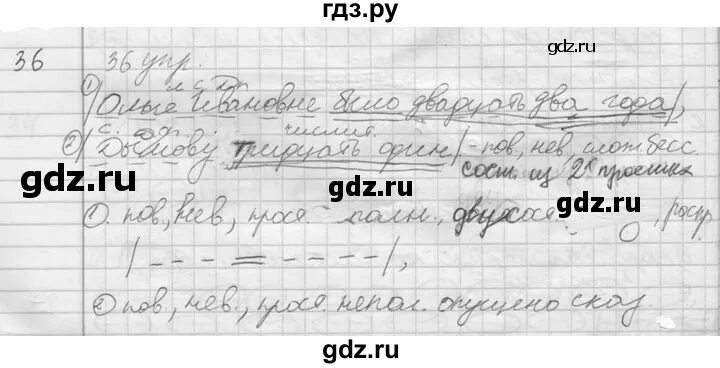 гдз.ру
gdz.ru
36
36 упр.
① с. Д.п.
/Ольге Ивановне было двадцать два года/,
② с. Д.п. числит.
/Дымову тридцать один/ - пов, нев, слож. бесс
gdz.ru
сост. из 2х простых
gdz.ru
① пов, нев, прост. полн., двусост. , распр.
/ - - - = - - - - /,
② пов, нев., прост. непол. опущено сказ.
gdz.ru
gdz.ru
gdz.ru